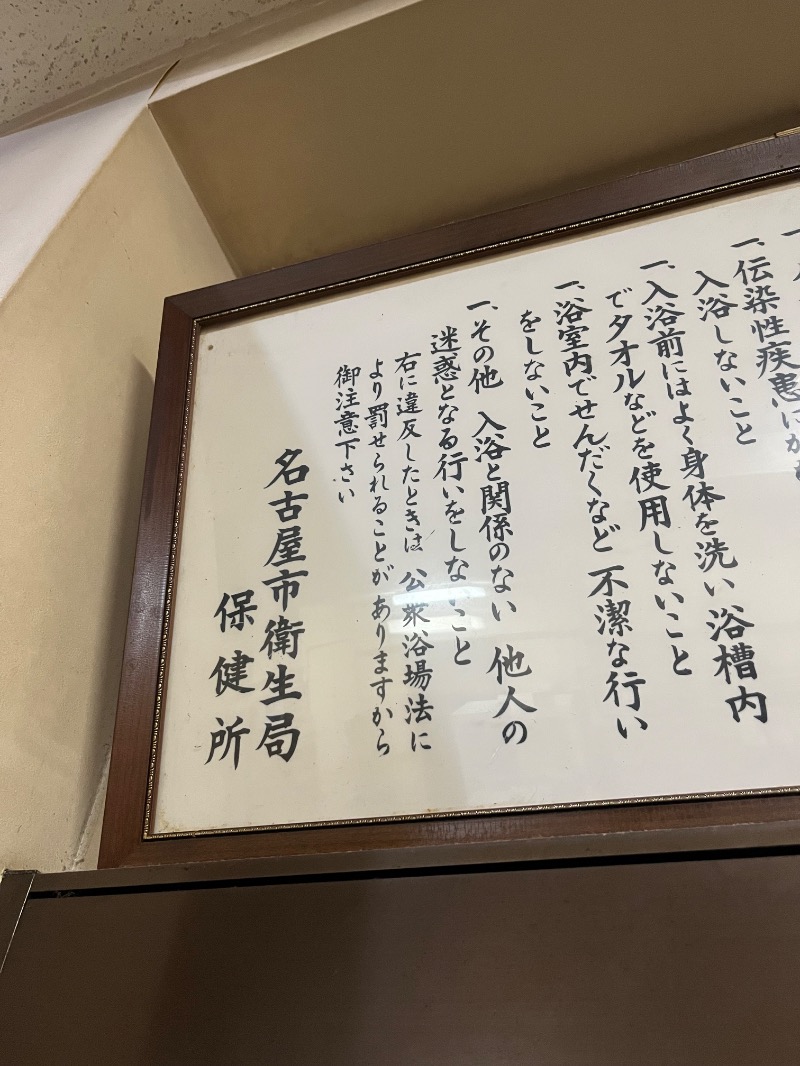 一、伝染性疾患にか
入浴しないこと
一、入浴前にはよく身体を洗い 浴槽内
でタオルなどを使用しないこと
一、浴室内でせんだくなど 不潔な行い
をしないこと
一、その他 入浴と関係のない 他人の
迷惑となる行いをしないこと
右に違反したときは 公衆浴場法に
より罰せられることが ありますから
御注意下さい
名古屋市衛生局
保健所